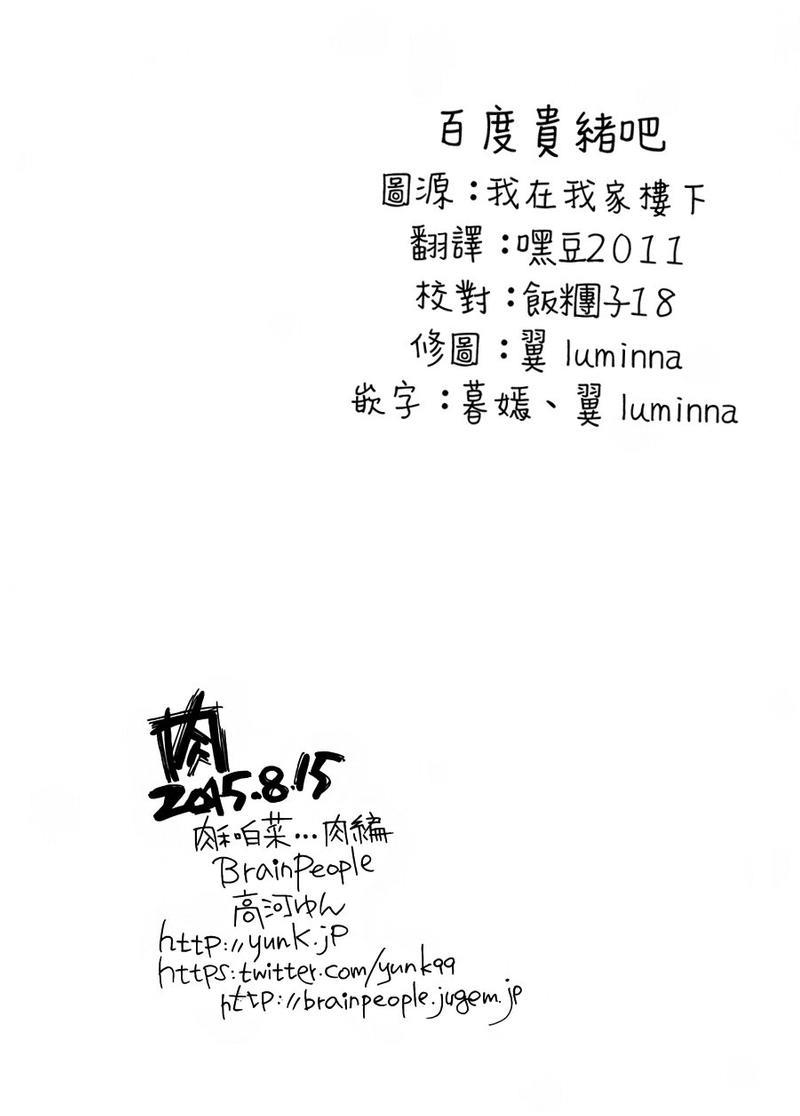 百度貴緒吧
圖源：我在我家樓下
翻譯：嘿豆2011
校對：飯糰子18
修圖：翼 luminna
嵌字：暮嫣、翼 luminna
肉
2015.8.15
肉和咱菜…肉編
BrainPeople
高河ゆん
http://yunk.jp
https:twitter.com/yunk99
http://brainpeople.jugem.jp